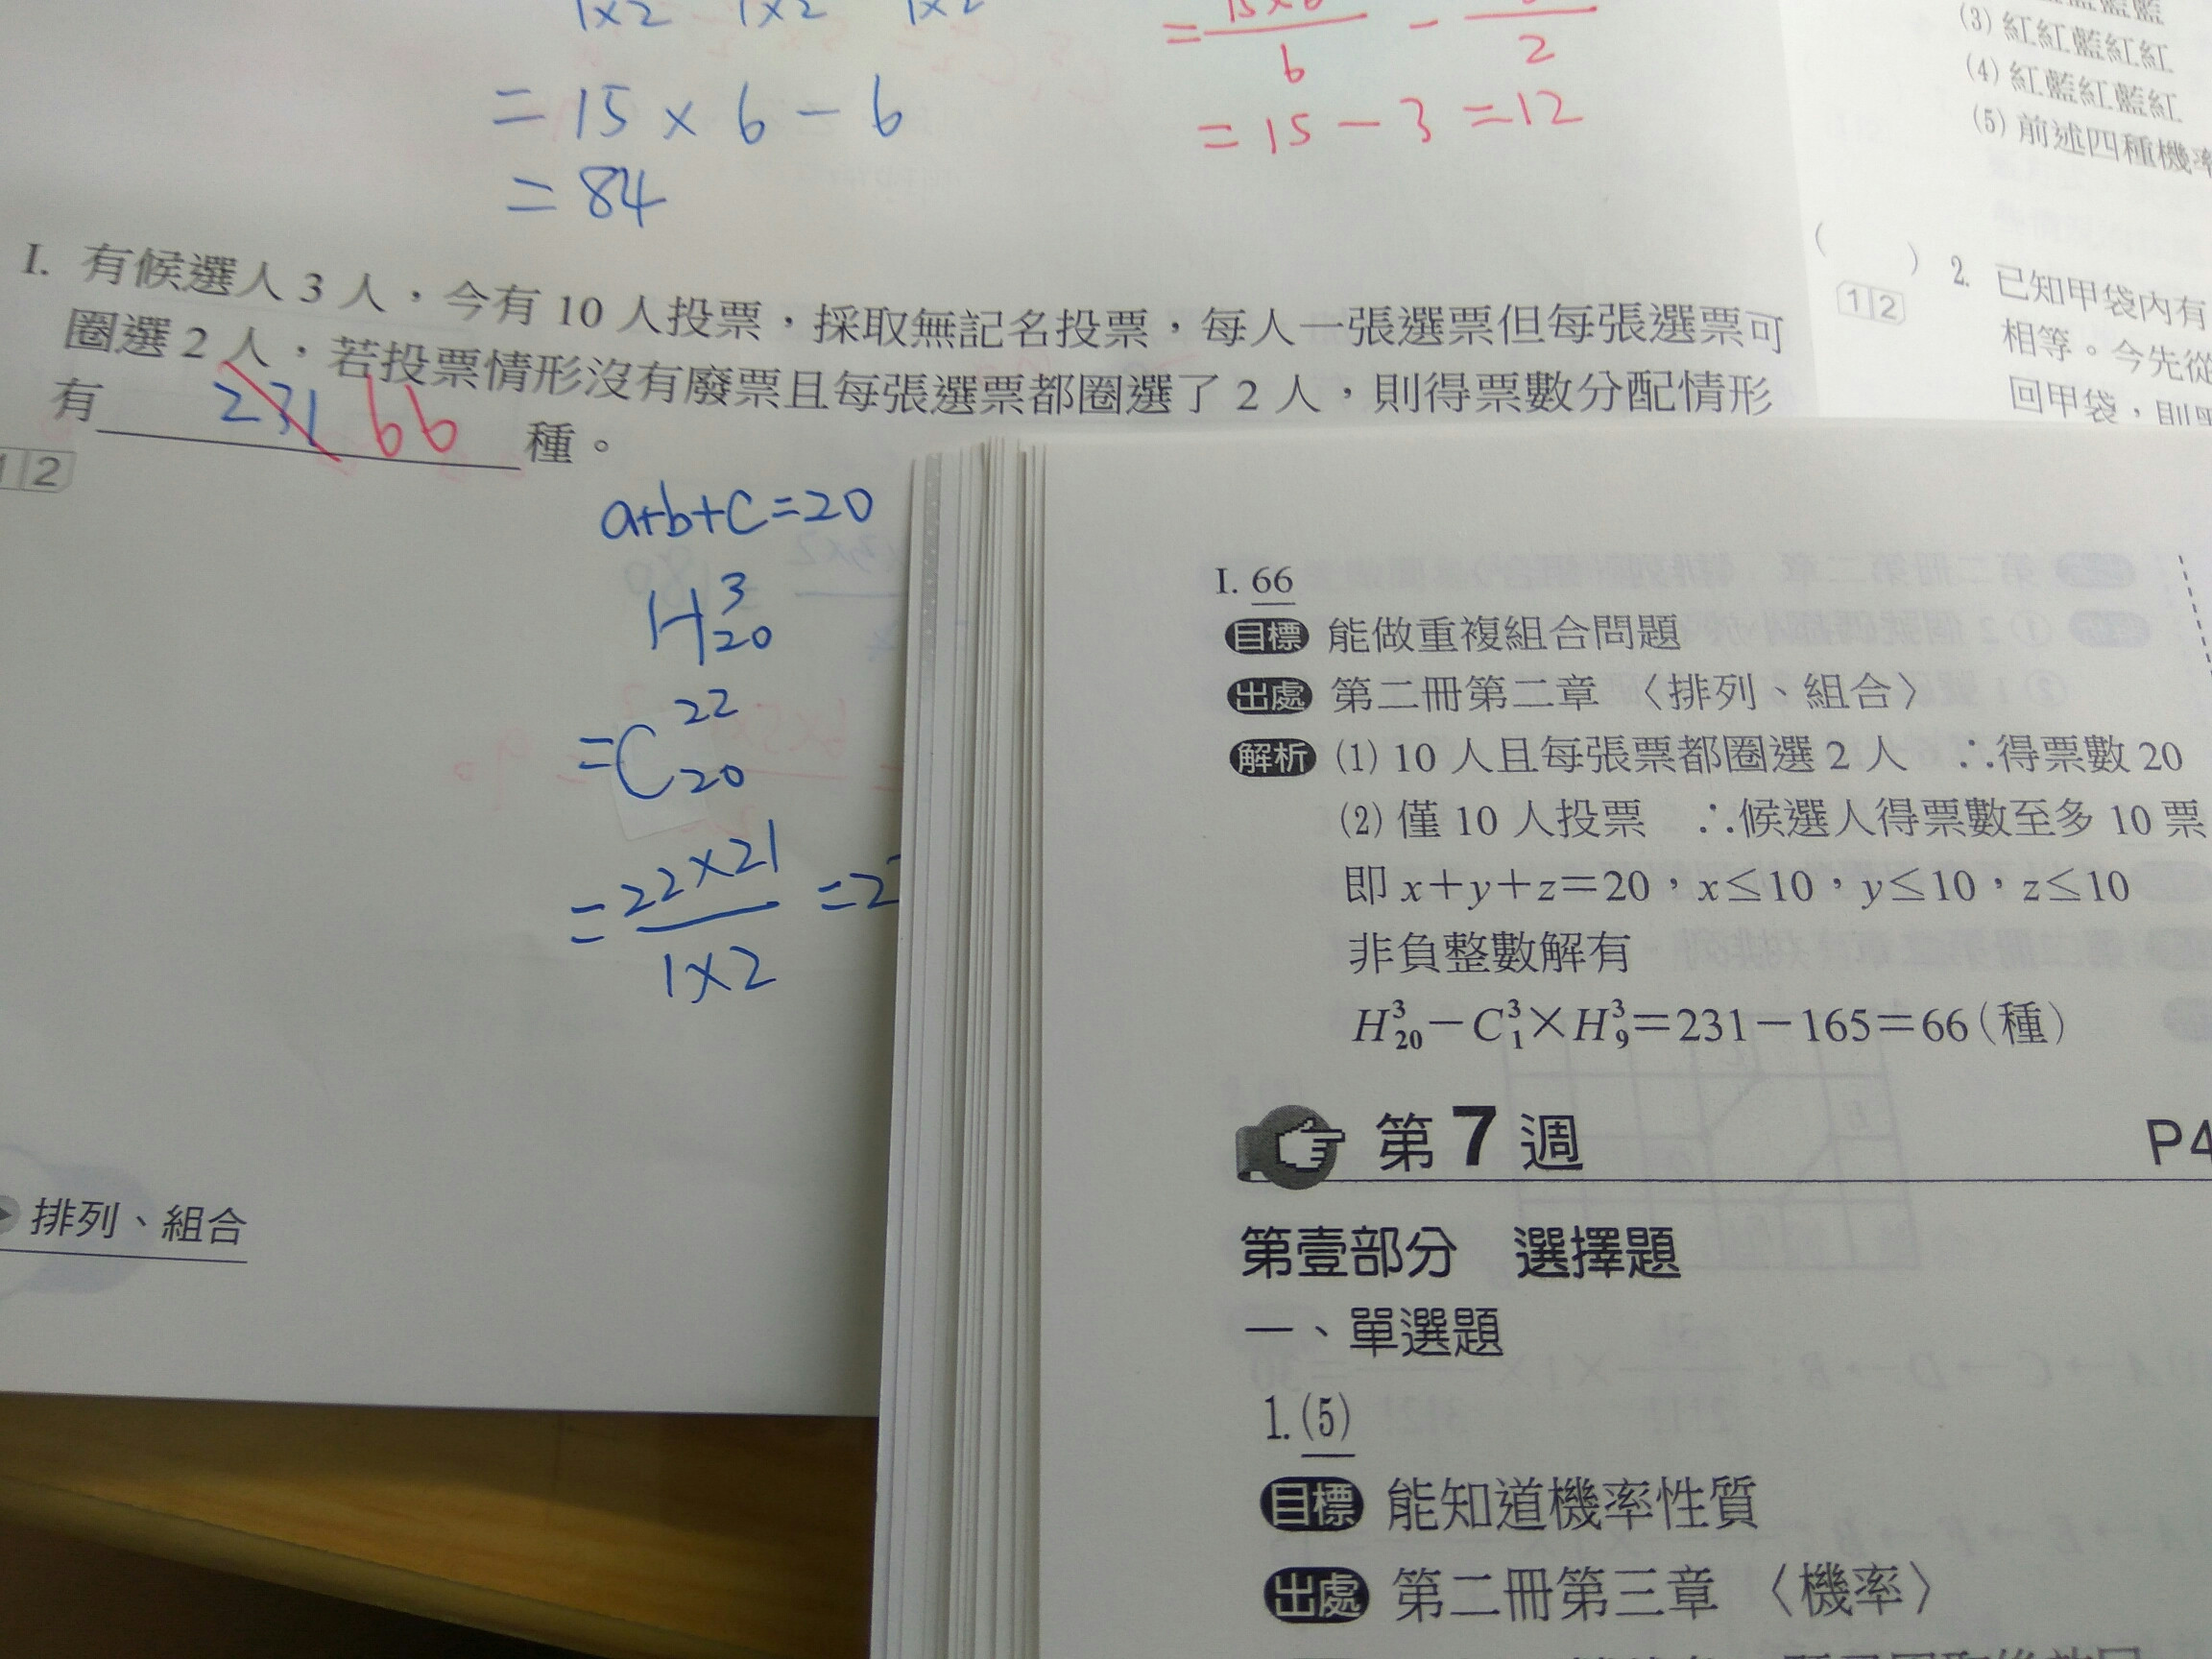 1×2 1×2 1×2
=15×6-6
=84
=15×6/6 - /2
=15-3=12
藍
(3) 紅紅藍紅紅
(4) 紅藍紅藍紅
(5) 前述四種機率
I. 有候選人 3 人,今有 10 人投票,採取無記名投票,每人一張選票但每張選票可
圈選 2 人,若投票情形沒有廢票且每張選票都圈選了 2 人,則得票數分配情形
有 231 66 種。
1 2
( ) 2. 已知甲袋內有
1 2
相等。今先從
回甲袋,則
a+b+c=20
H³₂₀
=C²²₂₀
=22×21/1×2 =2
排列、組合
I. 66
目標 能做重複組合問題
出處 第二冊第二章 〈排列、組合〉
解析 (1) 10 人且每張票都圈選 2 人 ∴得票數 20
(2) 僅 10 人投票 ∴候選人得票數至多 10 票
即 x+y+z=20,x≤10,y≤10,z≤10
非負整數解有
H³₂₀-C³₁×H³₉=231-165=66(種)
第 7 週 P4
第壹部分 選擇題
一、單選題
1. (5)
目標 能知道機率性質
出處 第二冊第三章 〈機率〉